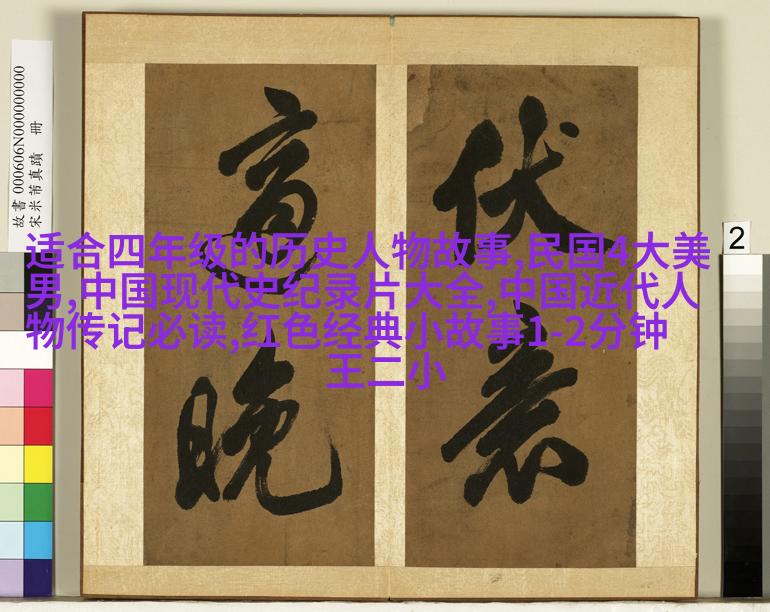 故書 000606N000000000
宋米芾真蹟 冊
2
伏
晚
适合四年级的历史人物故事,民国4大美
男,中国现代史纪录片大全,中国近代人
物传记必读,红色经典小故事1-2分钟
王二小